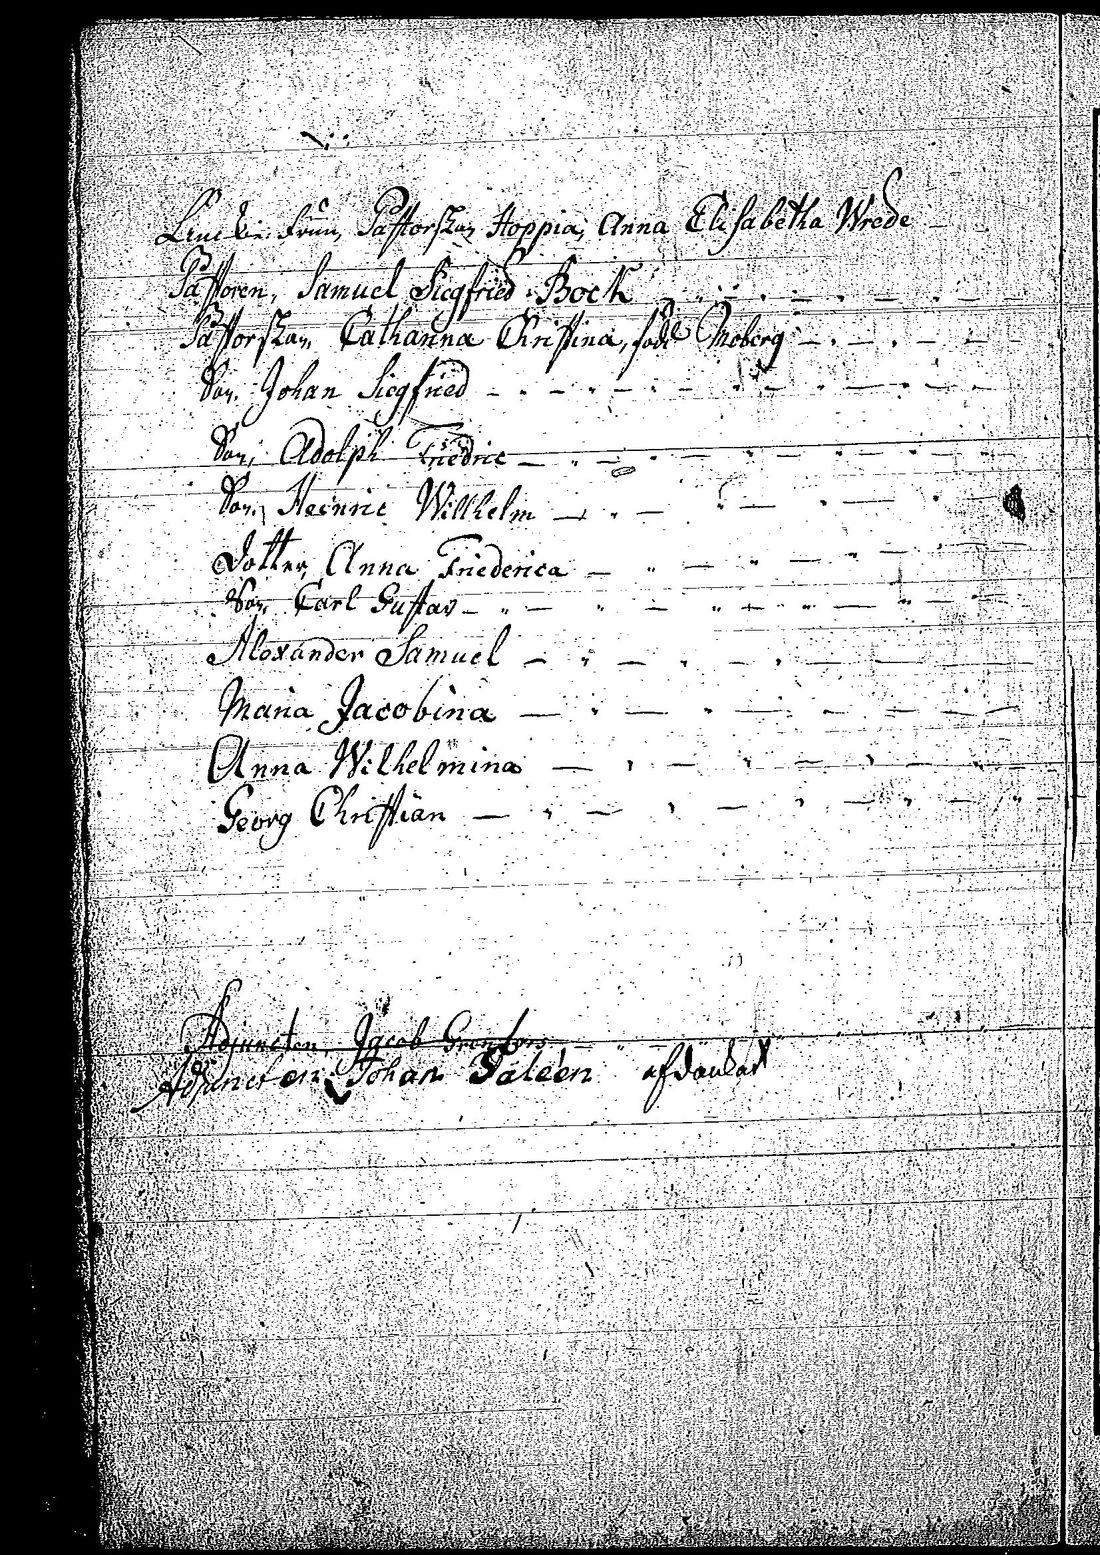 Enckie Frun, Pastorskan Hoppia, Anna Elisabetha Wrede
Pastoren, Samuel Siegfried Bock
Pastorskan Catharina Christina, född Moberg
Son, Johan Siegfried
Son, Adolph Friedric
Son, Heinric Willhelm
Dotter, Anna Friederica
Son, Carl Gustav
Alexander Samuel
Maria Jacobina
Anna Wilhelmina
Georg Christian
Adjuncten, Jacob
Adjuncten Johan Saleen afdankat